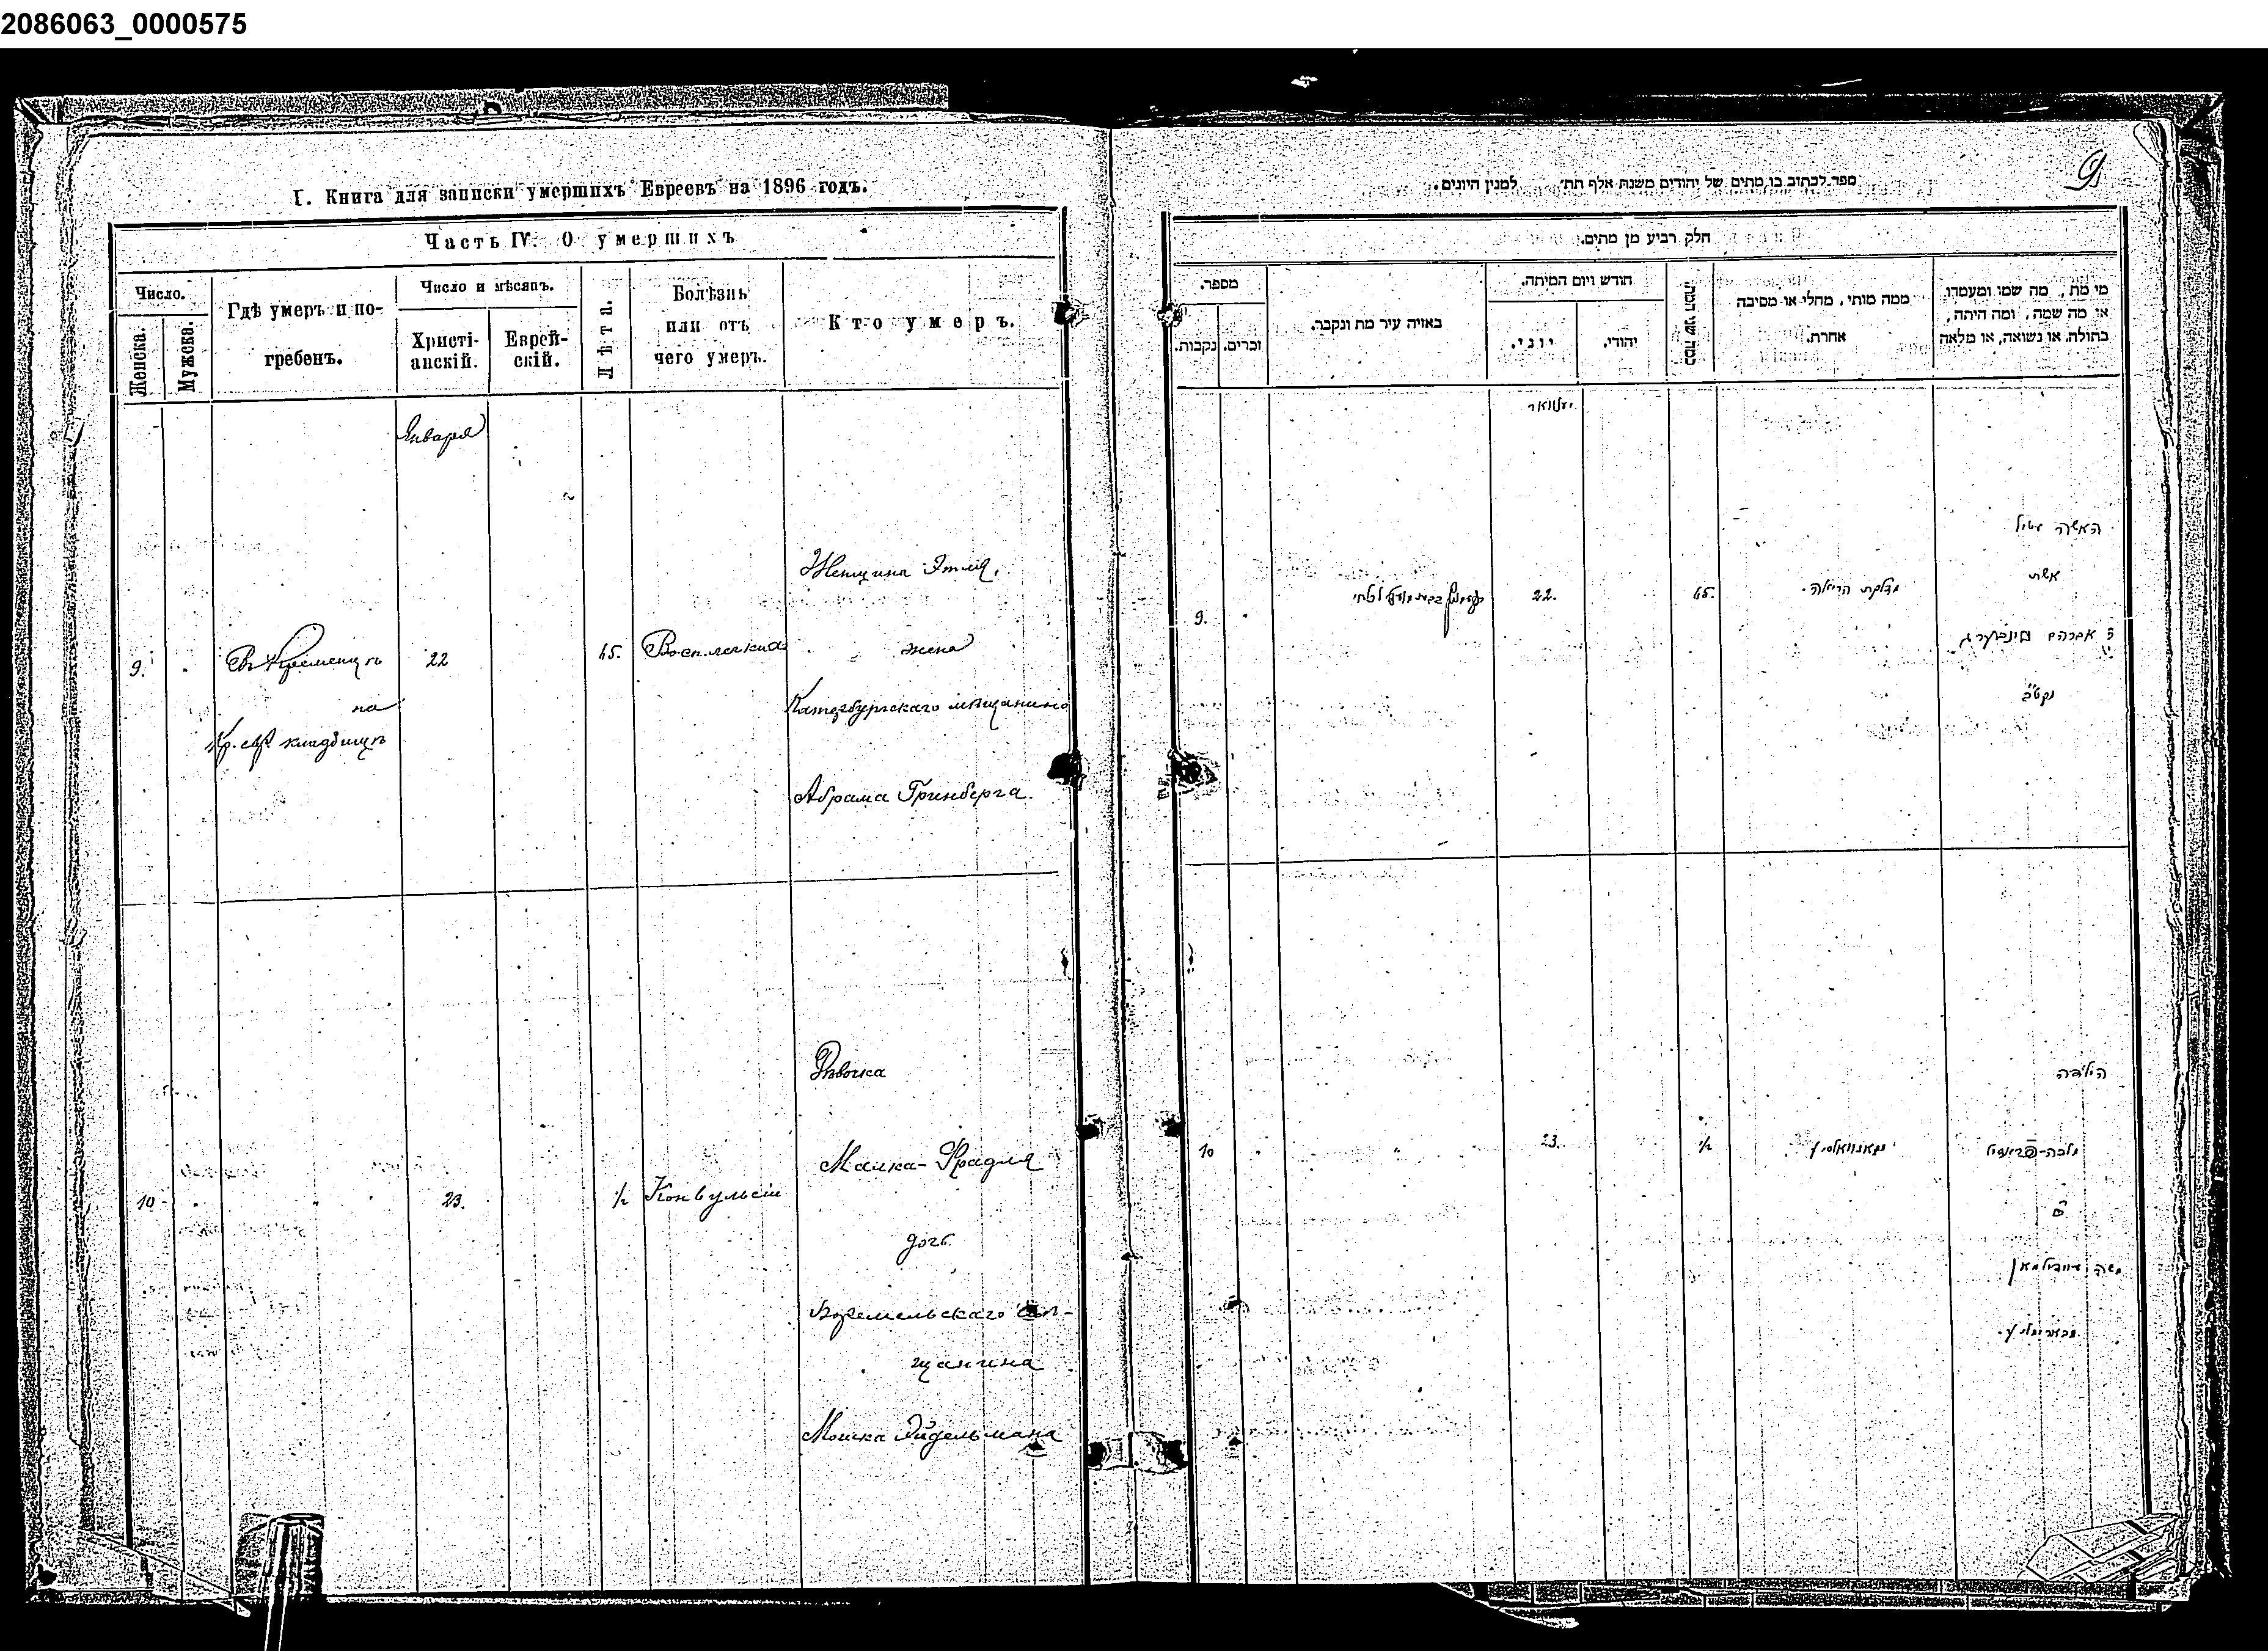 2086063_0000575
I. Книга для записки умершихъ Евреевъ на 1896 годъ.
Часть IV. О умершихъ
Число.
Женска.
Мужска.
Гдѣ умеръ и по-
гребенъ.
Число и мѣсяцъ.
Христі-
анскій.
Еврей-
скій.
Лѣта.
Болѣзнь
или отъ
чего умеръ.
Кто умеръ.
Января
9.
Въ Кременцѣ
на
Кр. евр. кладбищѣ
22
65.
Восп. легкихъ
Женщина Этля,
жена
Катербургскаго мѣщанина
Абрама Гринберга.
10
23.
1/2
Конвульсіи
Дѣвочка
Малка-Фрадля
дочь
Боремельскаго мѣ-
щанина
Мошка Эйдельмана
9
ספר לכתוב בו מתים של יהודים משנת אלף תת׳ למנין היונים.
חלק רביע מן מתים.
מספר.
נקבות.
זכרים.
באיזה עיר מת ונקבר.
חודש ויום המיתה.
יוני.
יהודי.
כמה שני המת
ממה מותי, מחלי או מסיבה
אחרת.
מי מת, מה שמו ומעמדו,
או מה שמה, ומה היתה,
בתולה, או נשואה, או מלאה
יאנוואר
9.
22.
65.
מדלקת הריאה.
האשה עטיל
אשת
ר׳ אברהם גרינבערג
10
23.
1/2
הילדה
משה איידילמאן